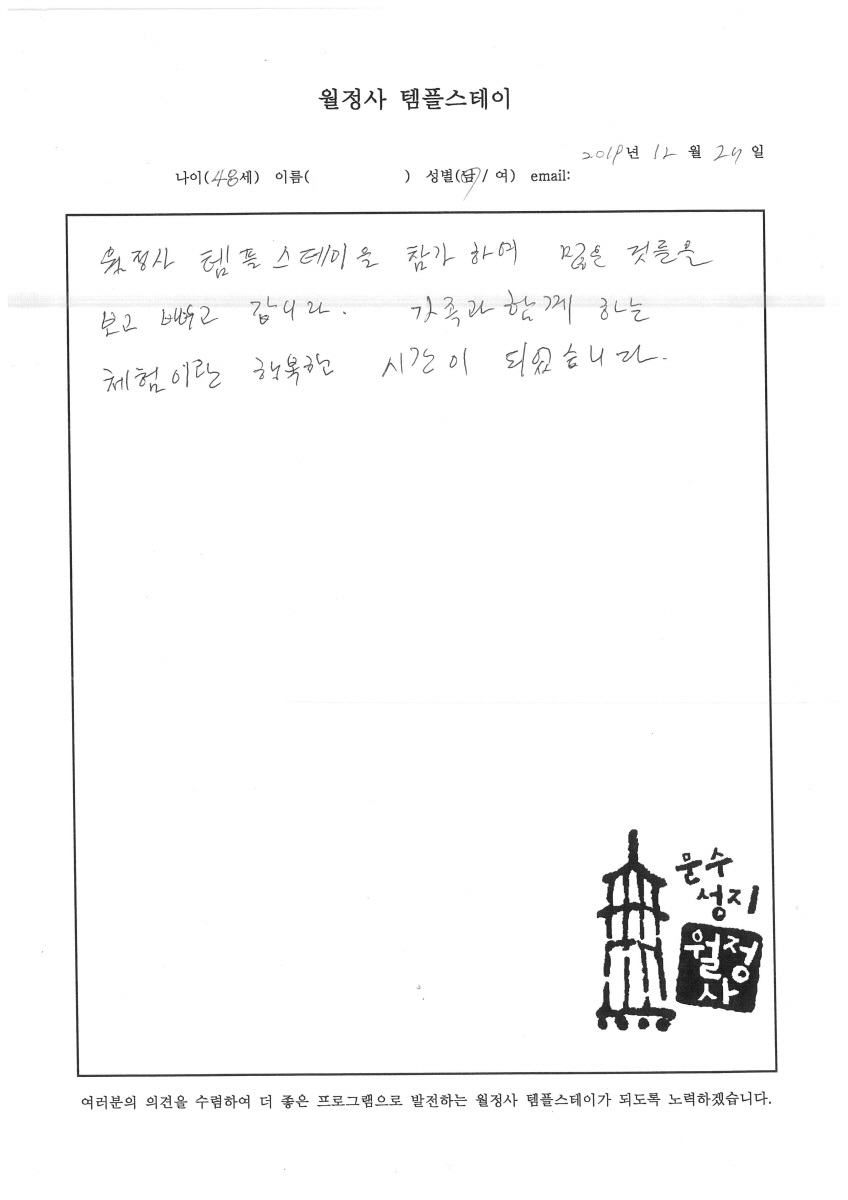 월정사 템플스테이
2019년 12 월 29 일
나이(48세) 이름( ) 성별(남/ 여) email:
월정사 템플스테이을 참가 하여 많은 것들을
보고 배우고 갑니다. 가족과 함께 하는
체험이란 행복한 시간이 되었습니다.
문수
성지
월정
사
여러분의 의견을 수렴하여 더 좋은 프로그램으로 발전하는 월정사 템플스테이가 되도록 노력하겠습니다.